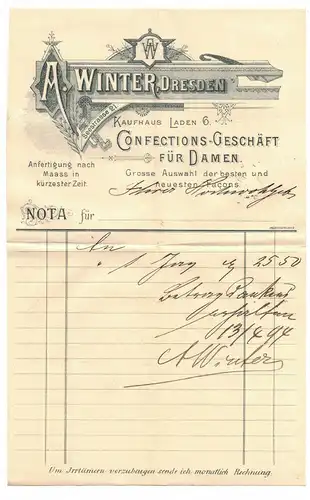 AW
A. WINTER, DRESDEN
Seestrasse 21
KAUFHAUS LADEN 6.
CONFECTIONS-GESCHÄFT
FÜR DAMEN.
Anfertigung nach
Maass in
kürzester Zeit.
Grosse Auswahl der besten und
neuesten Façons.
NOTA für
An
" 1 Jaq 25 50
Betrag dankend
erhalten
13/4 94
A Winter
Um Irrtümern vorzubeugen sende ich monatlich Rechnung.